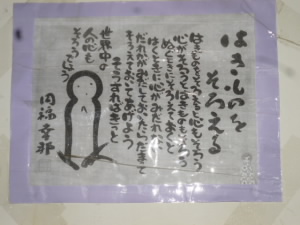 はきものを
そろえる
はきものをそろえると心もそろう
心がそろうとはきものもそろう
ぬぐときにそろえておくと
はくときに心がみだれない
だれかがみだしておいたら だまって
そろえておいてあげよう
そうすればきっと
世界中の
人の心も
そろうでしょう
円福幸那